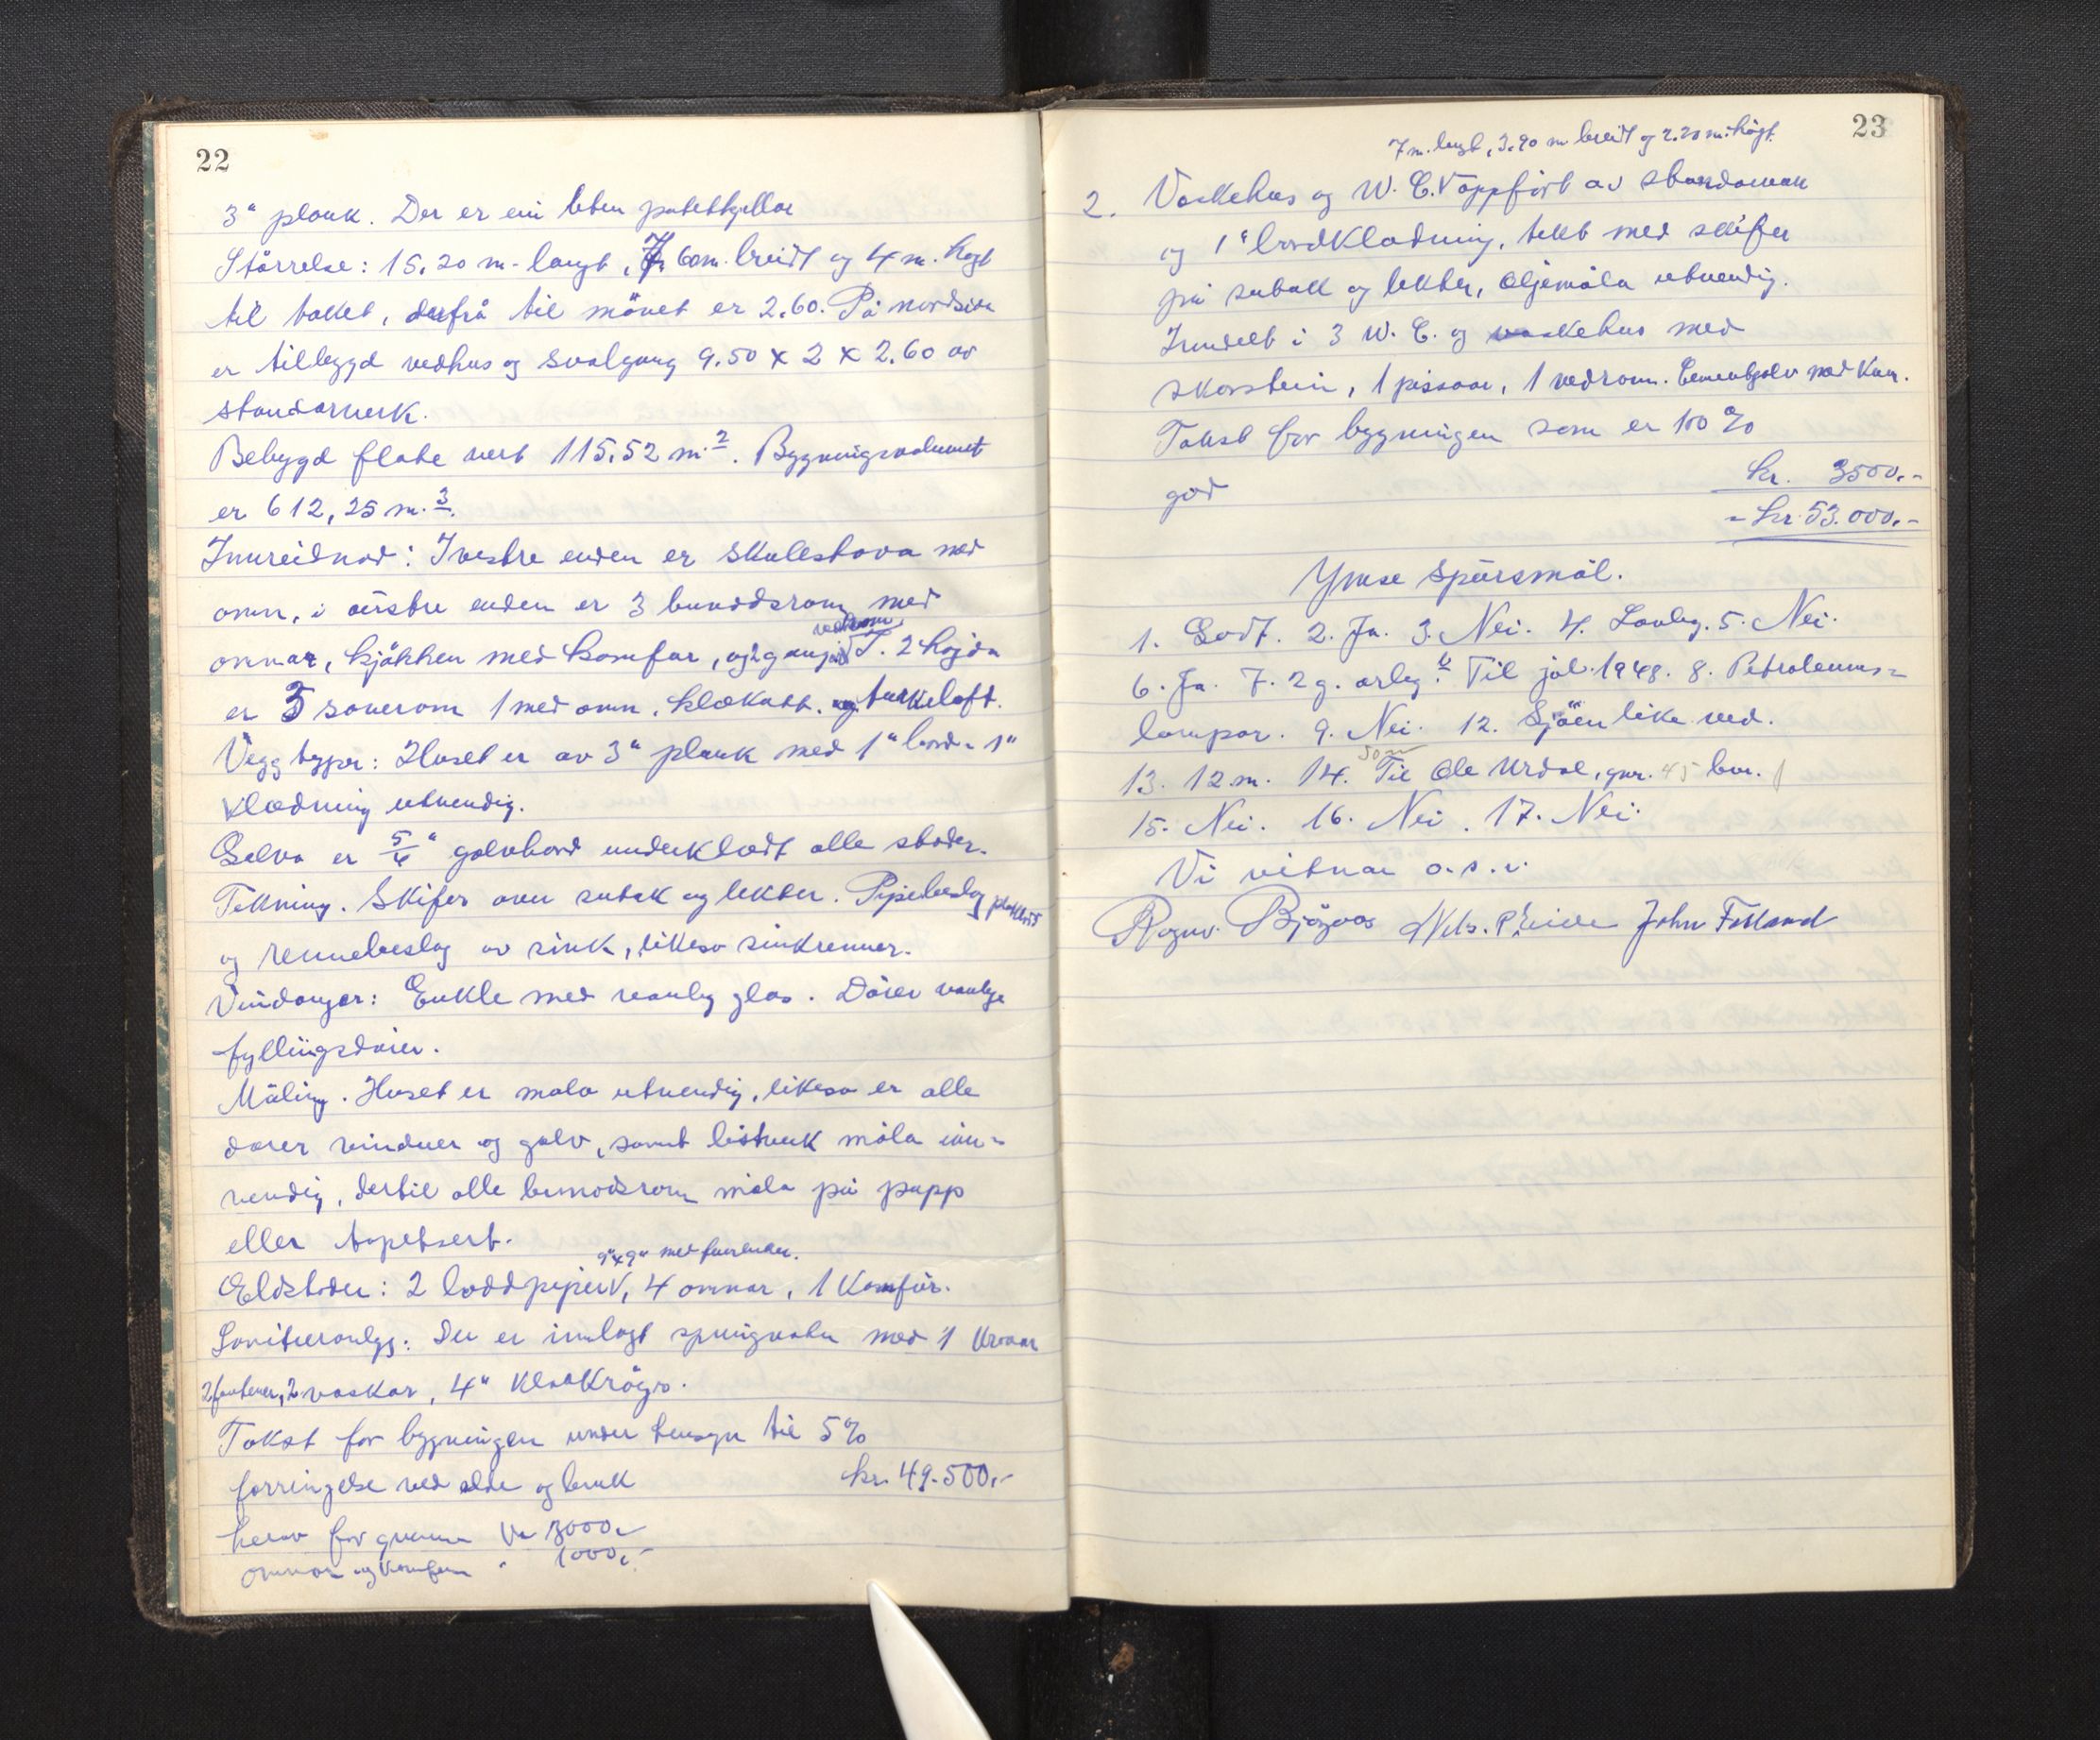 22
3" plank. Der er ein liten potetkjellar
Störrelse: 15,20 m. langt, 7,60 m. breidt og 4 m. högt
til taket, derfrå til mönet er 2,60. På nordsida
er tilbygd vedhus og svalgang 9.50 x 2 x 2.60 av
standarverk.
Bebygd flate vert 115,52 m.². Bygningsvolumet
er 612,25 m.³.
Innreidnad: I vestre enden er skulestova med
omn, i austre enden er 3 buradsrom med
omnar, kjökken med komfur, og 2 gangar I. 2 högda
vedrom
er 3 soverom 1 med omn, klækott, og turkeloft.
Vegg typer: Huset er av 3" plank med 1" bord- 1"
klædning utvendig.
Golva er 5/4" golvbord underklædt alle stader.
Tekning. Skifer over sutak og lekter. Pipebeslag
og rennebeslag av sink, likeso sinkrenner.
Vindauger: Enkle med vanleg glas. Dörer vanlege
fyllingsdörer.
Måling. Huset er mala utvendig, likeso er alle
dörer vinduer og golv, samt listverk måla inn-
vendig, dertil alle bumodsrom måla på papp
eller tapetsert.
9"x9" med fuorender.
Eldstader: 2 loddpiper V, 4 omnar, 1 Komfür.
Sanitæranlegg: Der er innlagt springvatn med 1 kran
2 vaskar, 4" Kloakkrögr.
Takst for bygningen under hensyn til 5%
forringelse ved elde og bruk kr. 49.500,-
herav for grunn Kr 3000,-
omnar og Komfur " 1000,-
23
7 m. langt, 3,90 m breidt og 2.20 m. högt.
2. Vaskehus og W.C. V oppfört av standarverk
og 1" bordklædning, tekt med skifer
på sutak og lekter, Oljemåla utvendig.
Inndelt i 3 W.C. og vaskehus med
skorstein, 1 pissoar, 1 vedrom. Cementgolv med Kum.
Takst for bygningen som er 100 %
god kr. 3500,-
= kr. 53.000,-
Ymse Spörsmål.
1. Godt. 2. Ja. 3. Nei. 4. Lovleg. 5. Nei.
6. Ja. 7. 2 g. årleg. Til jol 1948. 8. Petroleums-
lampor. 9. Nei. 12. Sjöen like ved.
50 m
13. 12 m. 14. Til Ole Urdal, gnr. 45 bnr. 1
15. Nei. 16. Nei. 17. Nei.
Vi vitnar o.s.v.
Rognv. Björgaas Nils. P. Eide John Folland